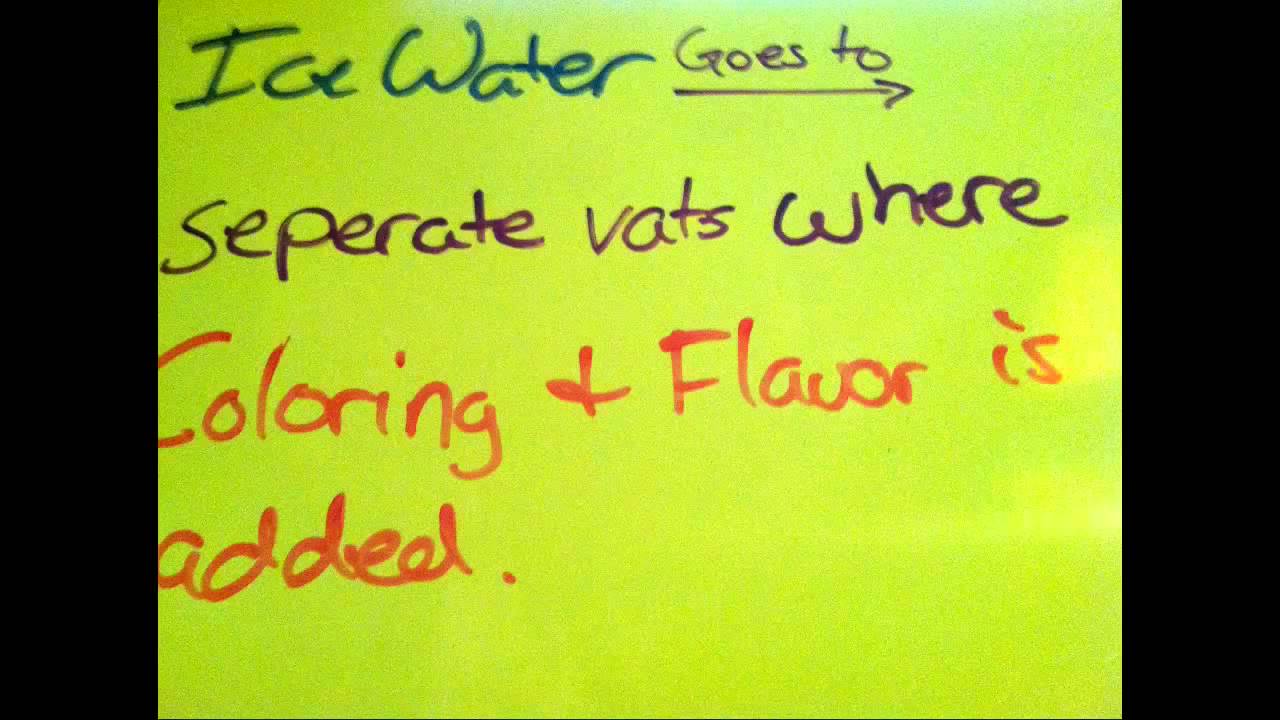 Ice Water Goes to
seperate vats where
Coloring & Flavor is
added.